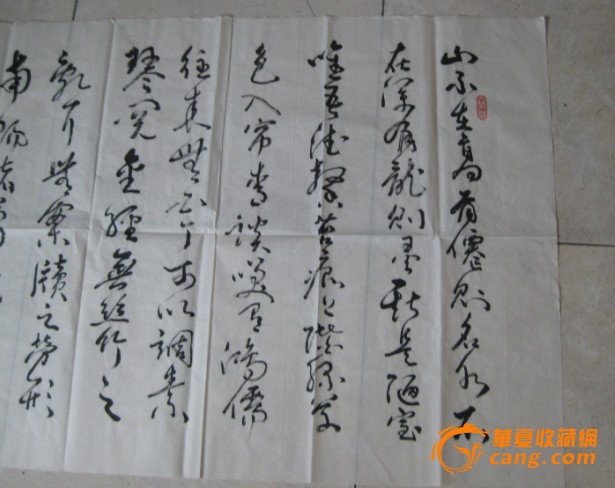 山不在高有僊则名水不
在深有龍则靈斯是陋室
唯吾德馨苔痕上階绿草
色入帘青談笑有鴻儒
往来無白丁可以調素
琴閱金經無絲竹之
亂耳無案牘之勞形
南陽諸葛
華夏收藏網
cang.com